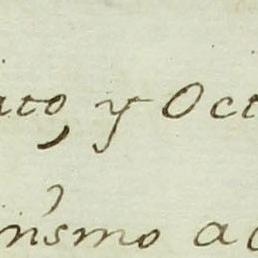 ato, y Oct
insmo a